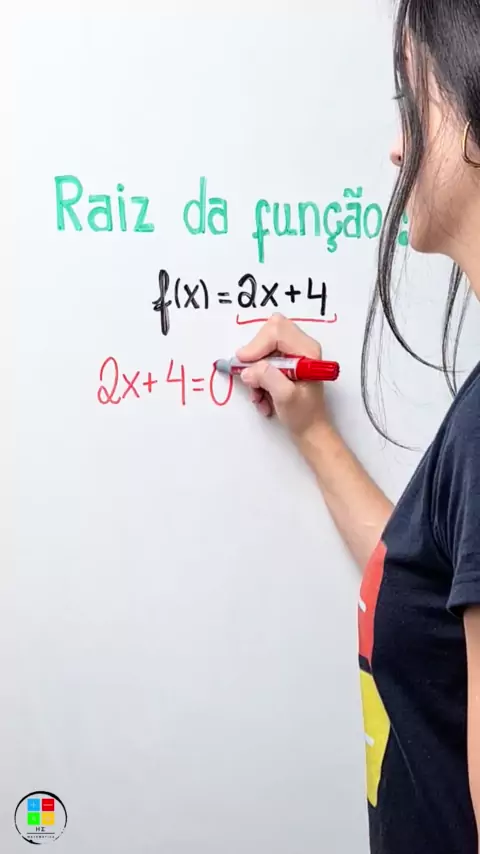 Raiz da função:
f(x)=2x+4
2x+4=0